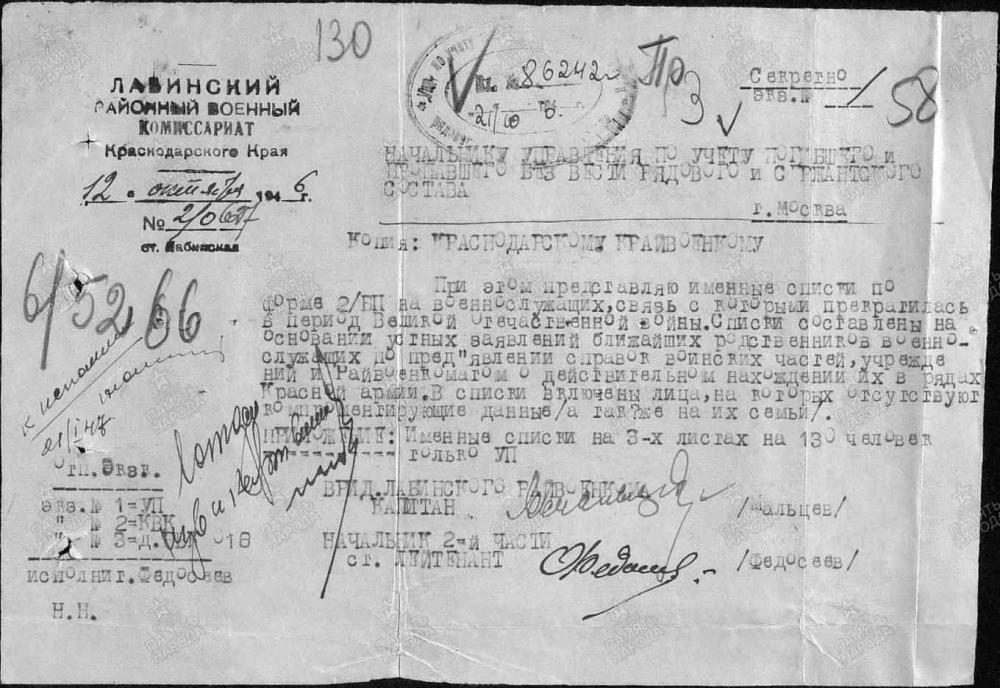 130
ЛАБИНСКИЙ
РАЙОННЫЙ ВОЕННЫЙ
КОМИССАРИАТ
Краснодарского Края
12 " октября 194 6 г.
№ 2/0687
ст. Лабинская
Вх. № 86242с
Пр
3
Секретно
экз.№ 1
58
НАЧАЛЬНИКУ УПРАВЛЕНИЯ ПО УЧЕТУ ПОГИБШЕГО И
ПРОПАВШЕГО БЕЗ ВЕСТИ РЯДОВОГО И СЕРЖАНТСКОГО
СОСТАВА
г.Москва
Копия: КРАСНОДАРСКОМУ КРАЙВОЕНКОМУ
6/52266
При этом представляю именные списки по
форме 2/БП на военнослужащих,связь с которыми прекратилась
в период Великой отечаственной войны.Списки составлены на
основании устных заявлений ближайших родственников военно-
служащих по пред"явлении справок воинских частей,учрежде
ний и Райвоенкоматом о действительном нахождении их в рядах
Красной армии.В списки включены лица,на которых отсутствуют
компроментирующие данные/а так?же на их семьи/.
21/I 47
ПРИЛОЖЕНИЕ: Именные списки на 3-х листах на 130 человек
только УП
Отп. 3экз.
экз.№ 1=УП
" № 2=КВК
" № 3=д.
018
исполниг.Федосеев
Н.Н.
ВРИД.ЛАБИНСКОГО РАЙВОЕНКОМА
КАПИТАН /Мальцев/
НАЧАЛЬНИК 2=й ЧАСТИ
ст. ЛЕЙТЕНАНТ /Федосеев/